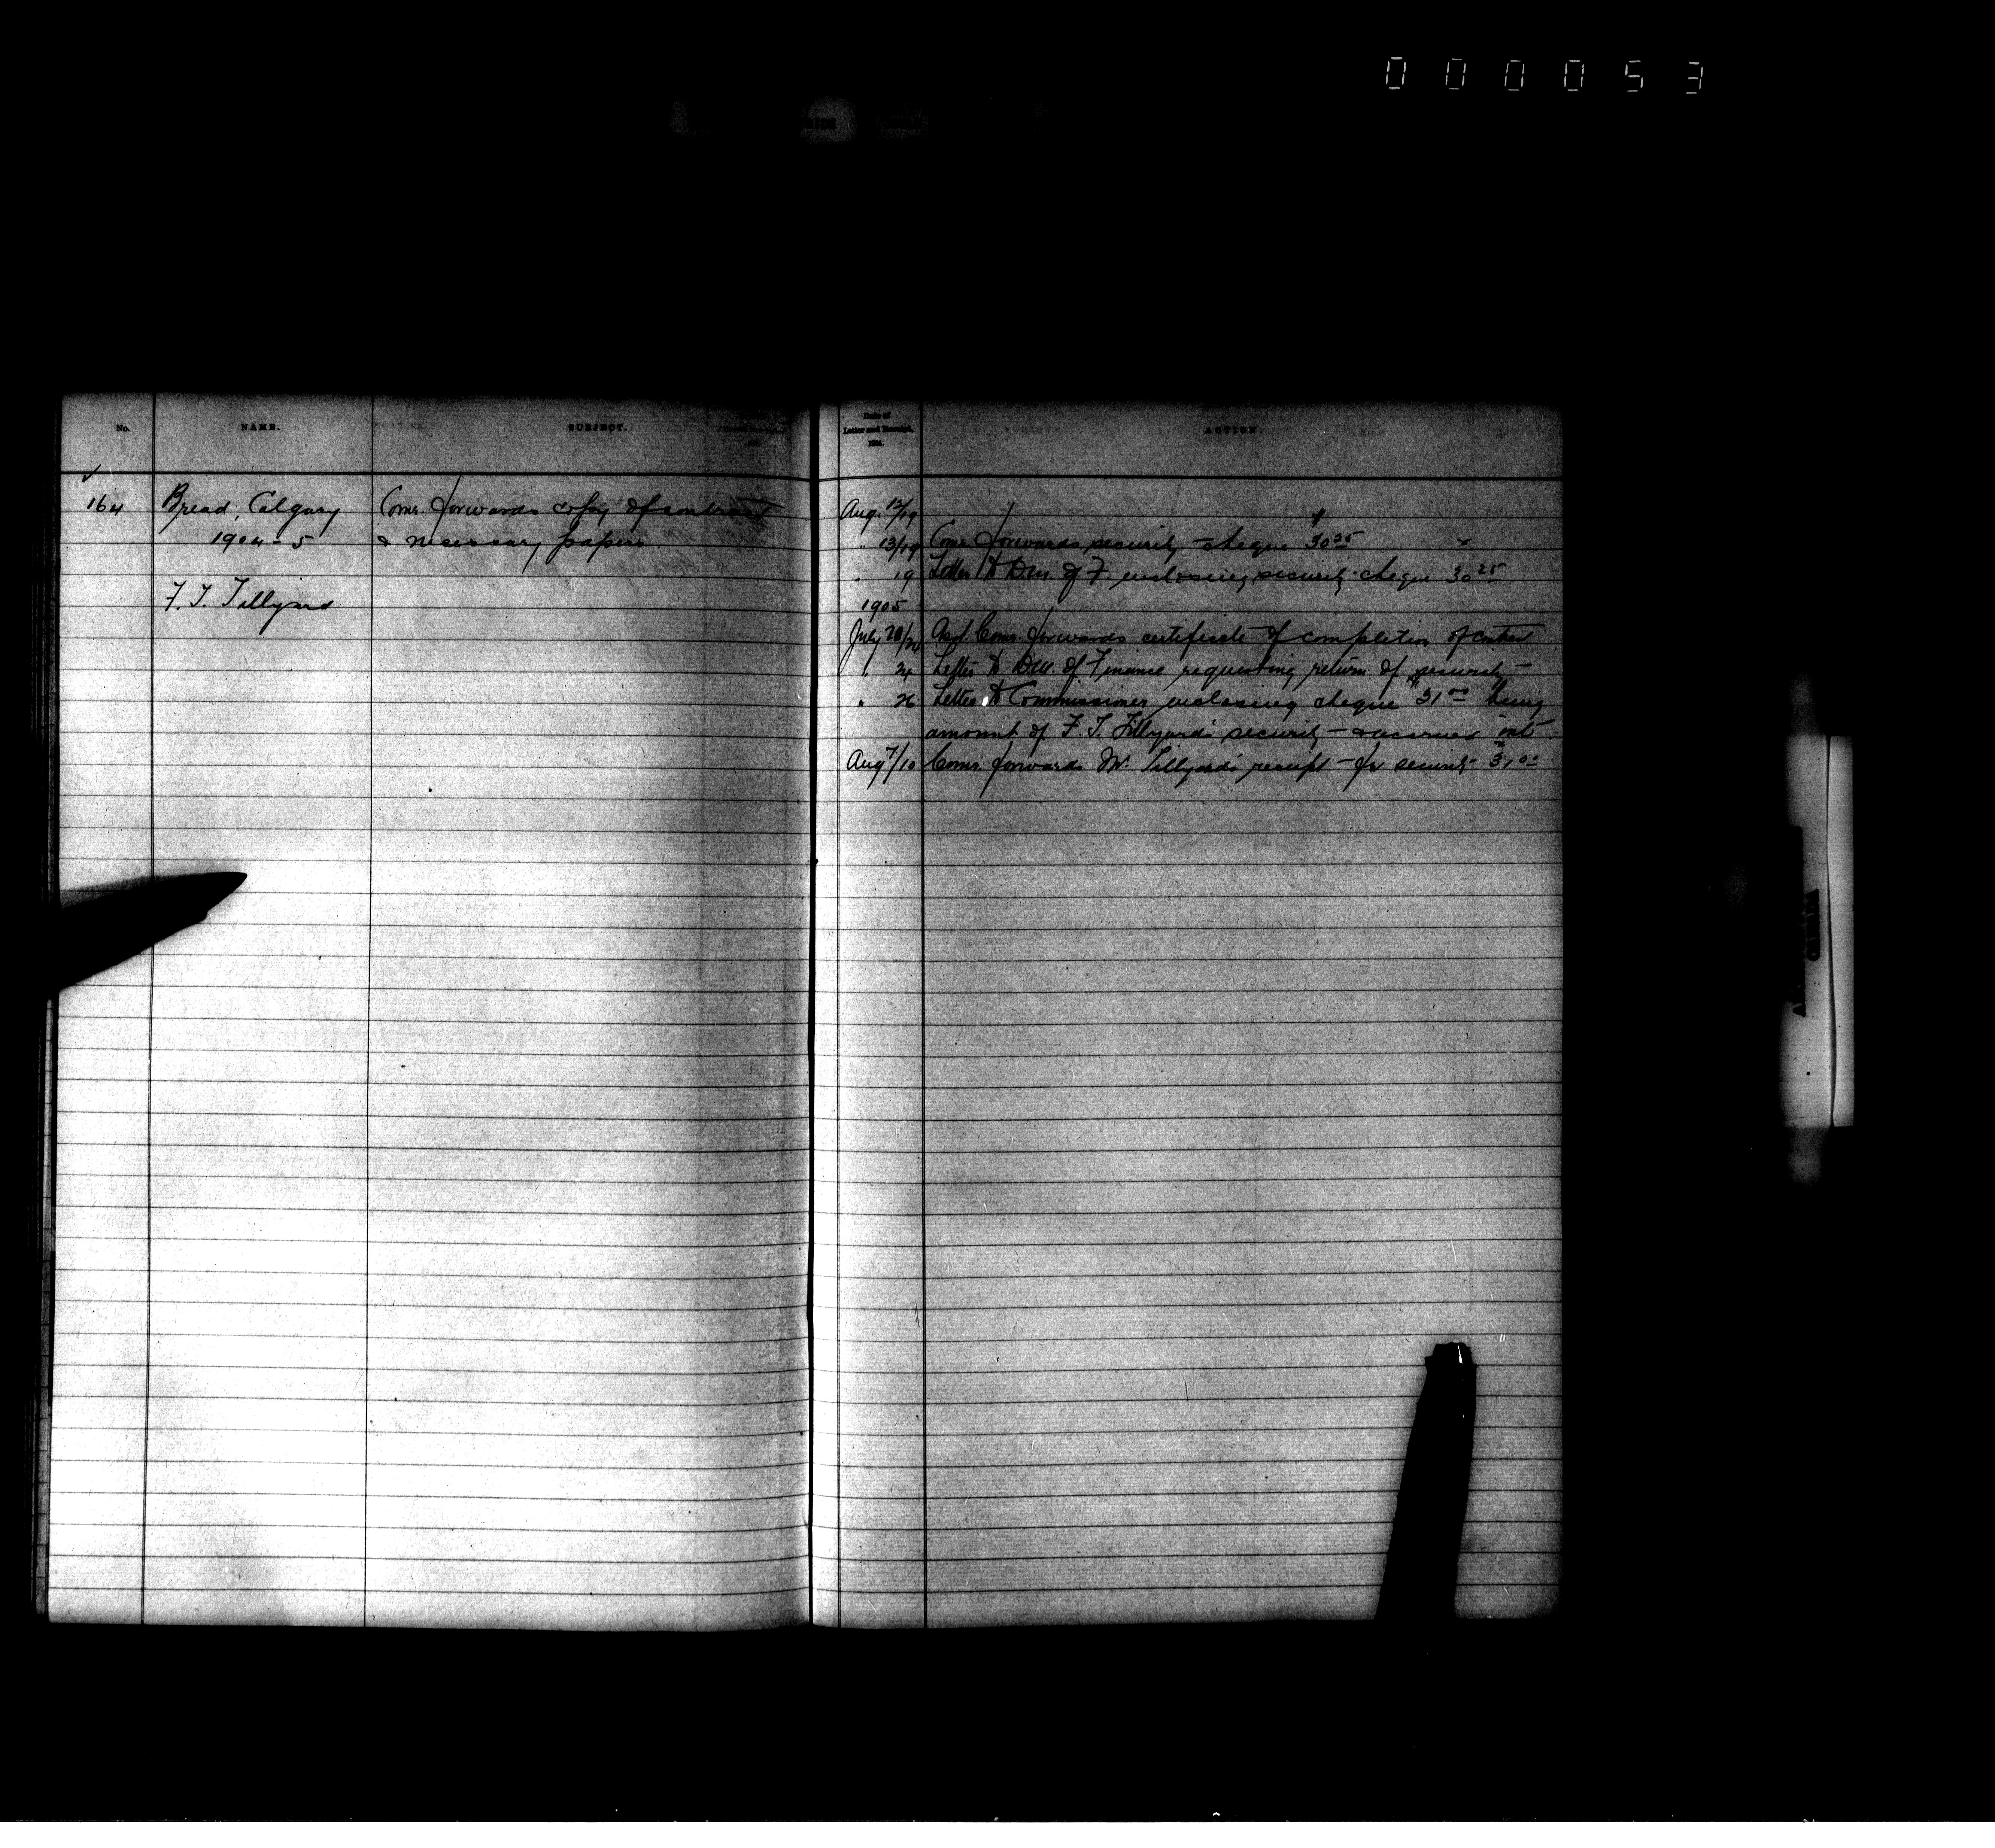 000053
No. NAME. SUBJECT.
164 Bread, Calgary Comr. forwards copy of contract
1904-5 & necessary papers
F. T. Tillyard
Date of
Letter and Receipt,
ACTION.
Aug. 12/19
" 13/19 Comr. forwards security cheque $30.25
" 19 Letter to Dep. of F. enclosing security cheque 30.25
1905
July 20/24 Asst. Comr. forwards certificate of completion of contract
" 24 Letter to Dep. of Finance requesting return of security
" 26 Letter to Commissioner enclosing cheque $31.00 being
amount of F. T. Tillyard's security & accrued int
Aug 7/10 Comr. forwards Mr. Tillyard's receipt for security $31.00